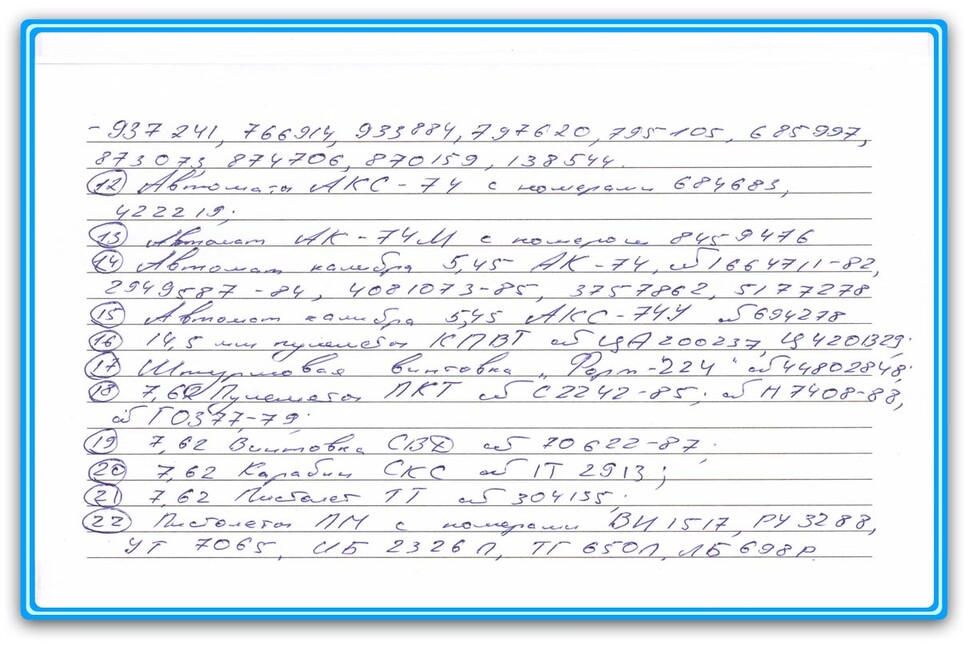 - 937241, 766914, 933884, 797620, 795105, 685997,
873073, 874706, 870159, 138544.
12 Автоматы АКС-74 с номерами 684683,
422219;
13 Автомат АК-74М с номером 8459476
14 Автомат калибра 5,45 АК-74, № 1664711-82,
2949587-84, 4081073-85, 3757862, 5177278
15 Автомат калибра 5,45 АКС-74У № 694278
16 14,5 мм пулеметы КПВТ № ЦА200237, Ц4201329;
17 Штурмовая винтовка „Форт-224" № 44802848;
18 7,62 Пулеметы ПКТ № С2242-85; № Н7408-88,
№ ГО377-79;
19 7,62 Винтовка СВД № 70622-87;
20 7,62 Карабин СКС № IT 2913;
21 7,62 Пистолет ТТ № 304135;
22 Пистолеты ПМ с номерами ВИ1517, РУ3288,
УТ 7065, ИБ 2326П, ТГ 650Л, ЛБ698Р